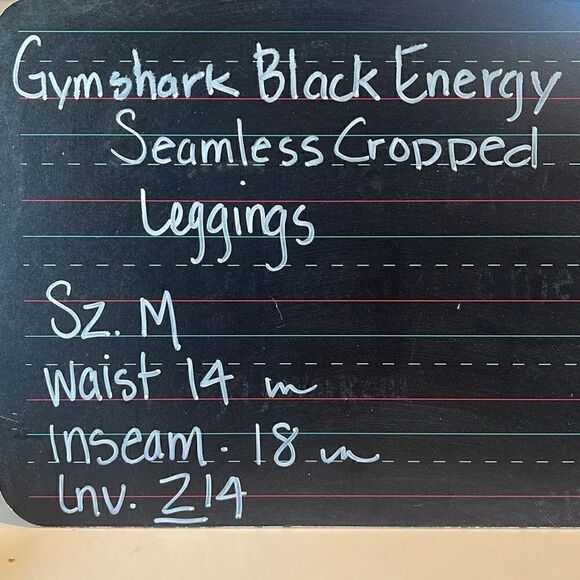 Gymshark Black Energy
Seamless Cropped
Leggings
Sz. M
Waist 14 in
Inseam. 18 in
Inv. Z14